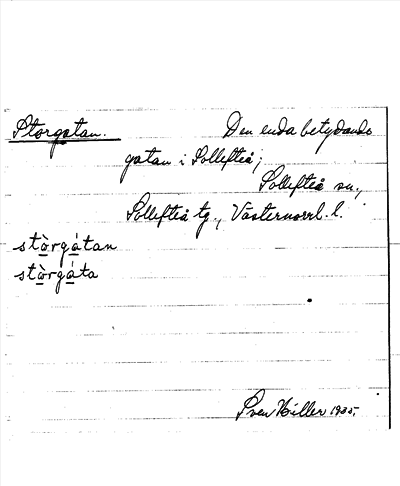 Storgatan. Den enda betydande
gatan i Sollefteå;
Sollefteå sn.,
Sollefteå tg., Västernorrl. l.
stòrgátan
stòrgáta
Sven Hiller 1935.